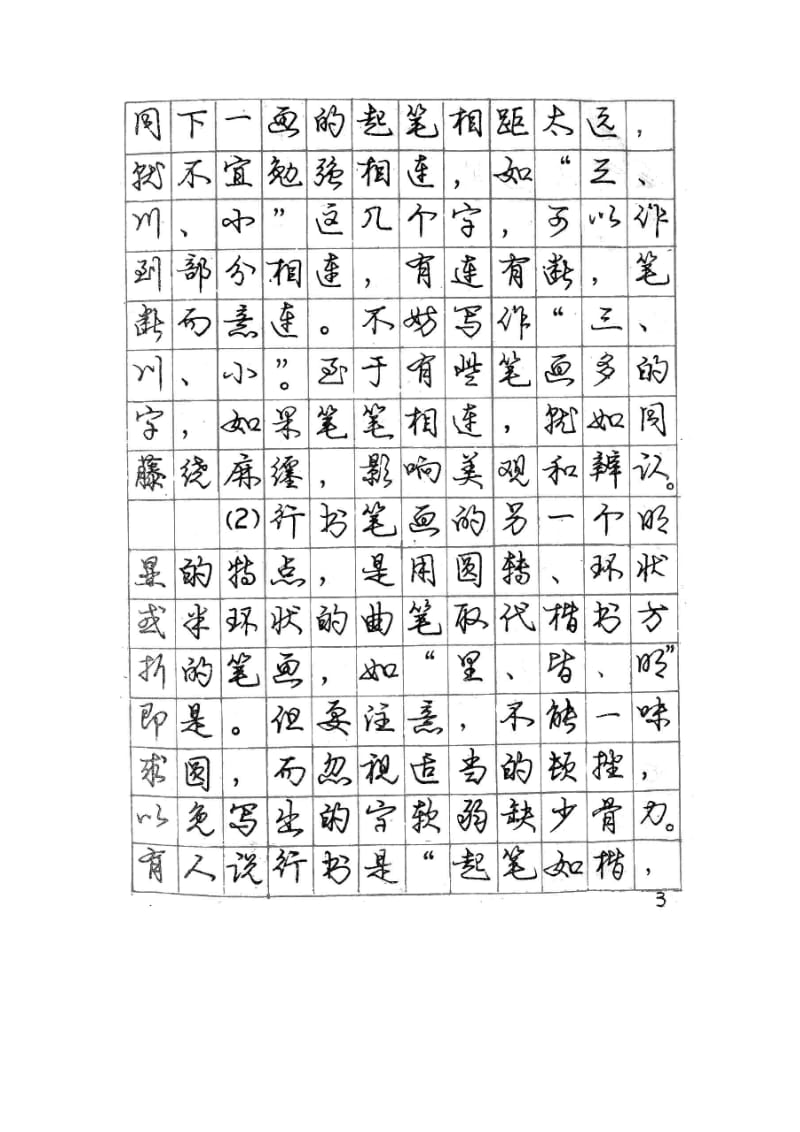 同下一画的起笔相距太远，
就不宜勉强相连，如“三、
川、小”这几个字，可以作
到部分相连，有连有断，笔
断而意连。不妨写作“三、
川、小”。至于有些笔画多的
字，如果笔笔相连，就如同
藤绕麻缠，影响美观和辨认。
(2)行书笔画的另一个明
显的特点，是用圆转、环状
或半环状的曲笔取代楷书方
折的笔画，如“里、皆、明”
即是。但要注意，不能一味
求圆，而忽视适当的顿挫，
以免写出的字软弱缺少骨力。
有人说行书是“起笔如楷，
3